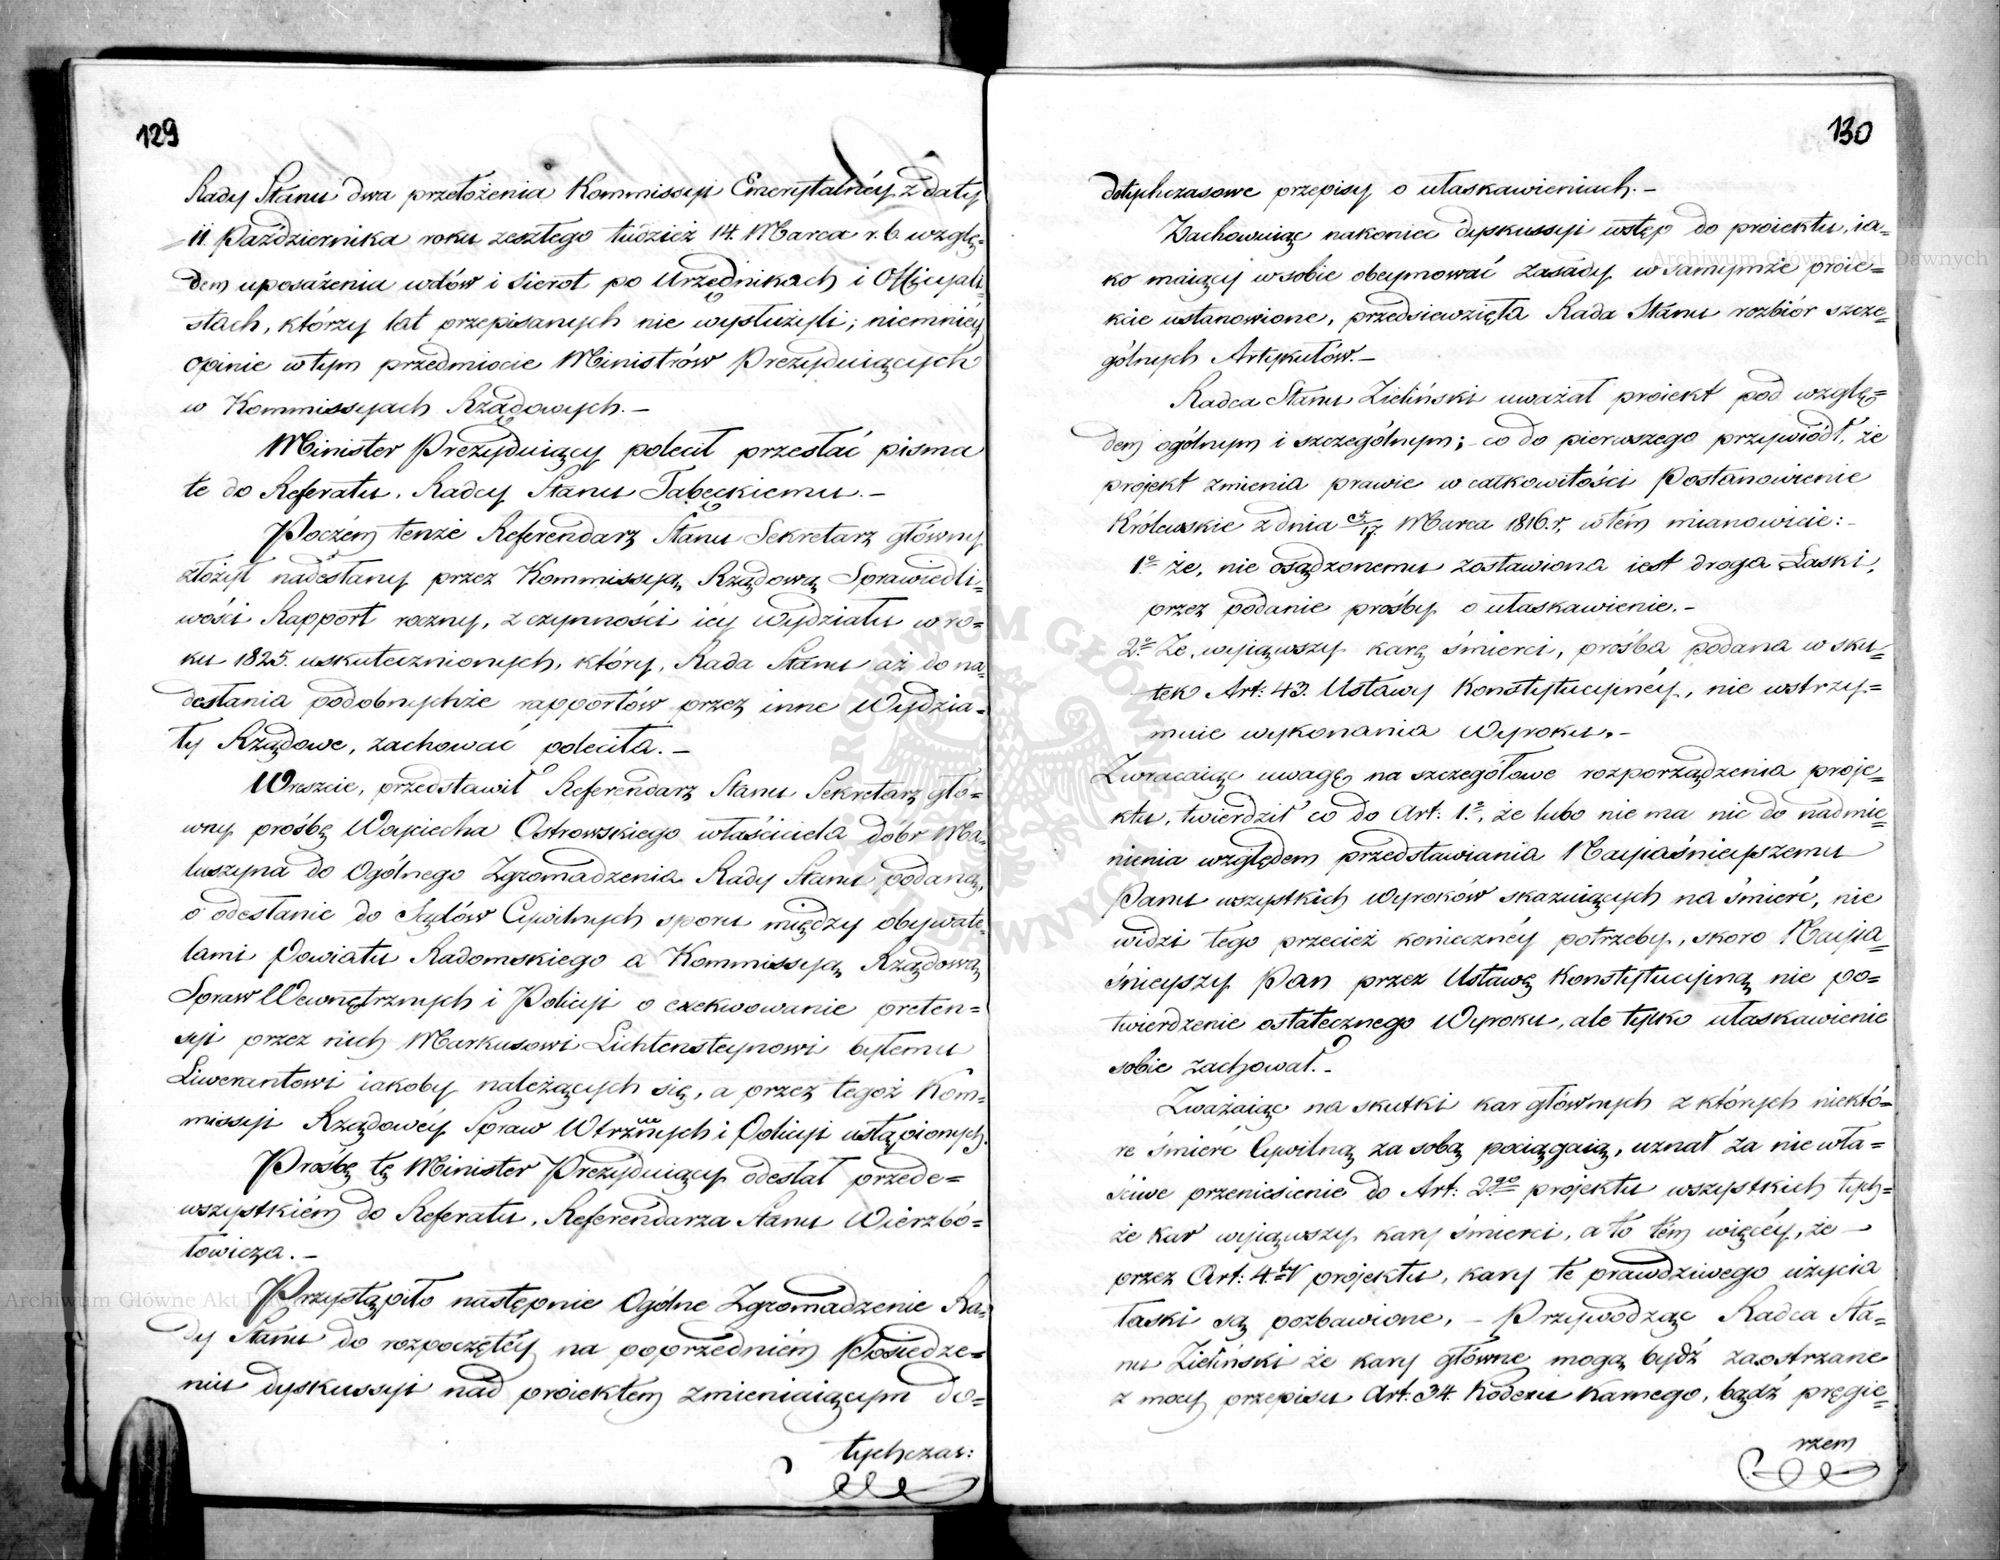 129
Rady Stanu dwa przełożenia Kommissyi Emerytalnéy z daty
11. Października roku zeszłego tudzież 14. Marca r. b. wzglę=
dem uposażenia wdów i Sierot po Urzędnikach i Officyali=
stach, którzy lat przepisanych nie wysłużyli; niemniéy
Opinie w tym przedmiocie Ministrów Prezyduiących
w Kommissyach Rządowych. –
Minister Prezyduiący polecił przesłać pisma
te do Referatu, Radcy Stanu Tabęckiemu. –
Poczém tenże Referendarz Stanu Sekretarz główny
złożył nadesłany przez Kommissyą Rządową Sprawiedli=
wości Rapport roczny, z czynności iéy Wydziału w ro=
ku 1825. uskutecznionych, który, Rada Stanu aż do na=
desłania podobnychże rapportów przez inne Wydzia=
ły Rządowe, zachować poleciła. –
Wreszcie, przedstawił Referendarz Stanu Sekretarz głó=
wny prośbę Wojciecha Ostrowskiego właściciela dóbr Ma=
luszyna do Ogólnego Zgromadzenia Rady Stanu podaną,
o odesłanie do Sądów Cywilnych sporu między obywate=
lami Powiatu Radomskiego a Kommissyą Rządową
Spraw Wewnętrznych i Policyi o exekwowanie preten=
syi przez nich Markusowi Lichtensteynowi byłemu
Liwerantowi iakoby należących się, a przez tegoż Kom=
missyi Rządowéy Spraw Wtrznych i Policyi ustąpionych.
Prośbę tę Minister Prezyduiący odesłał przede=
wszystkiém do Referatu, Referendarza Stanu Wierzbó=
łowicza. –
Przystąpiło następnie Ogólne Zgromadzenie Ra=
dy Stanu do rozpoczętéy na poprzedniém Posiedze=
niu dyskussyi nad proiektem zmieniaiącym do=
tychczas:
130
dotychczasowe przepisy o ułaskawieniach. –
Zachowuiąc nakoniec dyskussyi wstęp do proiektu, ia=
ko maiący w sobie obeymować zasady w samymże proie=
kcie ustanowione, przedsięwzięła Rada Stanu rozbiór szcze=
gólnych Artykułów. –
Radca Stanu Zieliński uważał proiekt pod wzglę=
dem ogólnym i szczególnym; co do pierwszego przywiódł, że
projekt zmienia prawie w całkowitości Postanowienie
Królewskie z dnia 5/17. Marca 1816. r. w tém mianowicie: –
1o że, nie osądzonemu zostawiona iest droga Łaski,
przez podanie prośby o ułaskawienie. –
2o Że, wyiąwszy karę śmierci, prośba podana w sku=
tek Art: 43. Ustawy Konstytucyinéy, nie wstrzy=
muie wykonania Wyroku. –
Zwracaiąc uwagę, na szczegółowe rozporządzenia proje=
ktu, twierdził co do Art: 1.o, że lubo nie ma nic do nadmie=
nienia względem przedstawiania Nayiaśnieyszemu
Panu wszystkich Wyroków skazuiących na śmierć, nie
widzi tego przecież koniecznéy potrzeby, skoro Nayia=
śnieyszy Pan przez Ustawę Konstytucyiną nie po=
twierdzenie ostatecznego Wyroku, ale tylko ułaskawienie
sobie zachował. –
Zważaiąc na skutki kar głównych z których niektó=
re śmierć Cywilną za sobą pociągaią, uznał za nie wła=
ściwe przeniesienie do Art: 2go projektu wszystkich tych=
że kar wyiąwszy kary śmierci, a to tém więcéy, że –
przez Art: 4.ty projektu, kary te prawdziwego użycia
łaski są pozbawione. – Przywodząc Radca Sta=
nu Zieliński że kary główne mogą bydź zaostrzane
z mocy przepisu Art: 34. Kodexu Karnego, bądź pręgie=
rzem
Archiwum Główne Akt Dawnych
Archiwum Główne Akt Dawnych
ARCHIWUM GŁÓWNE AKT DAWNYCH